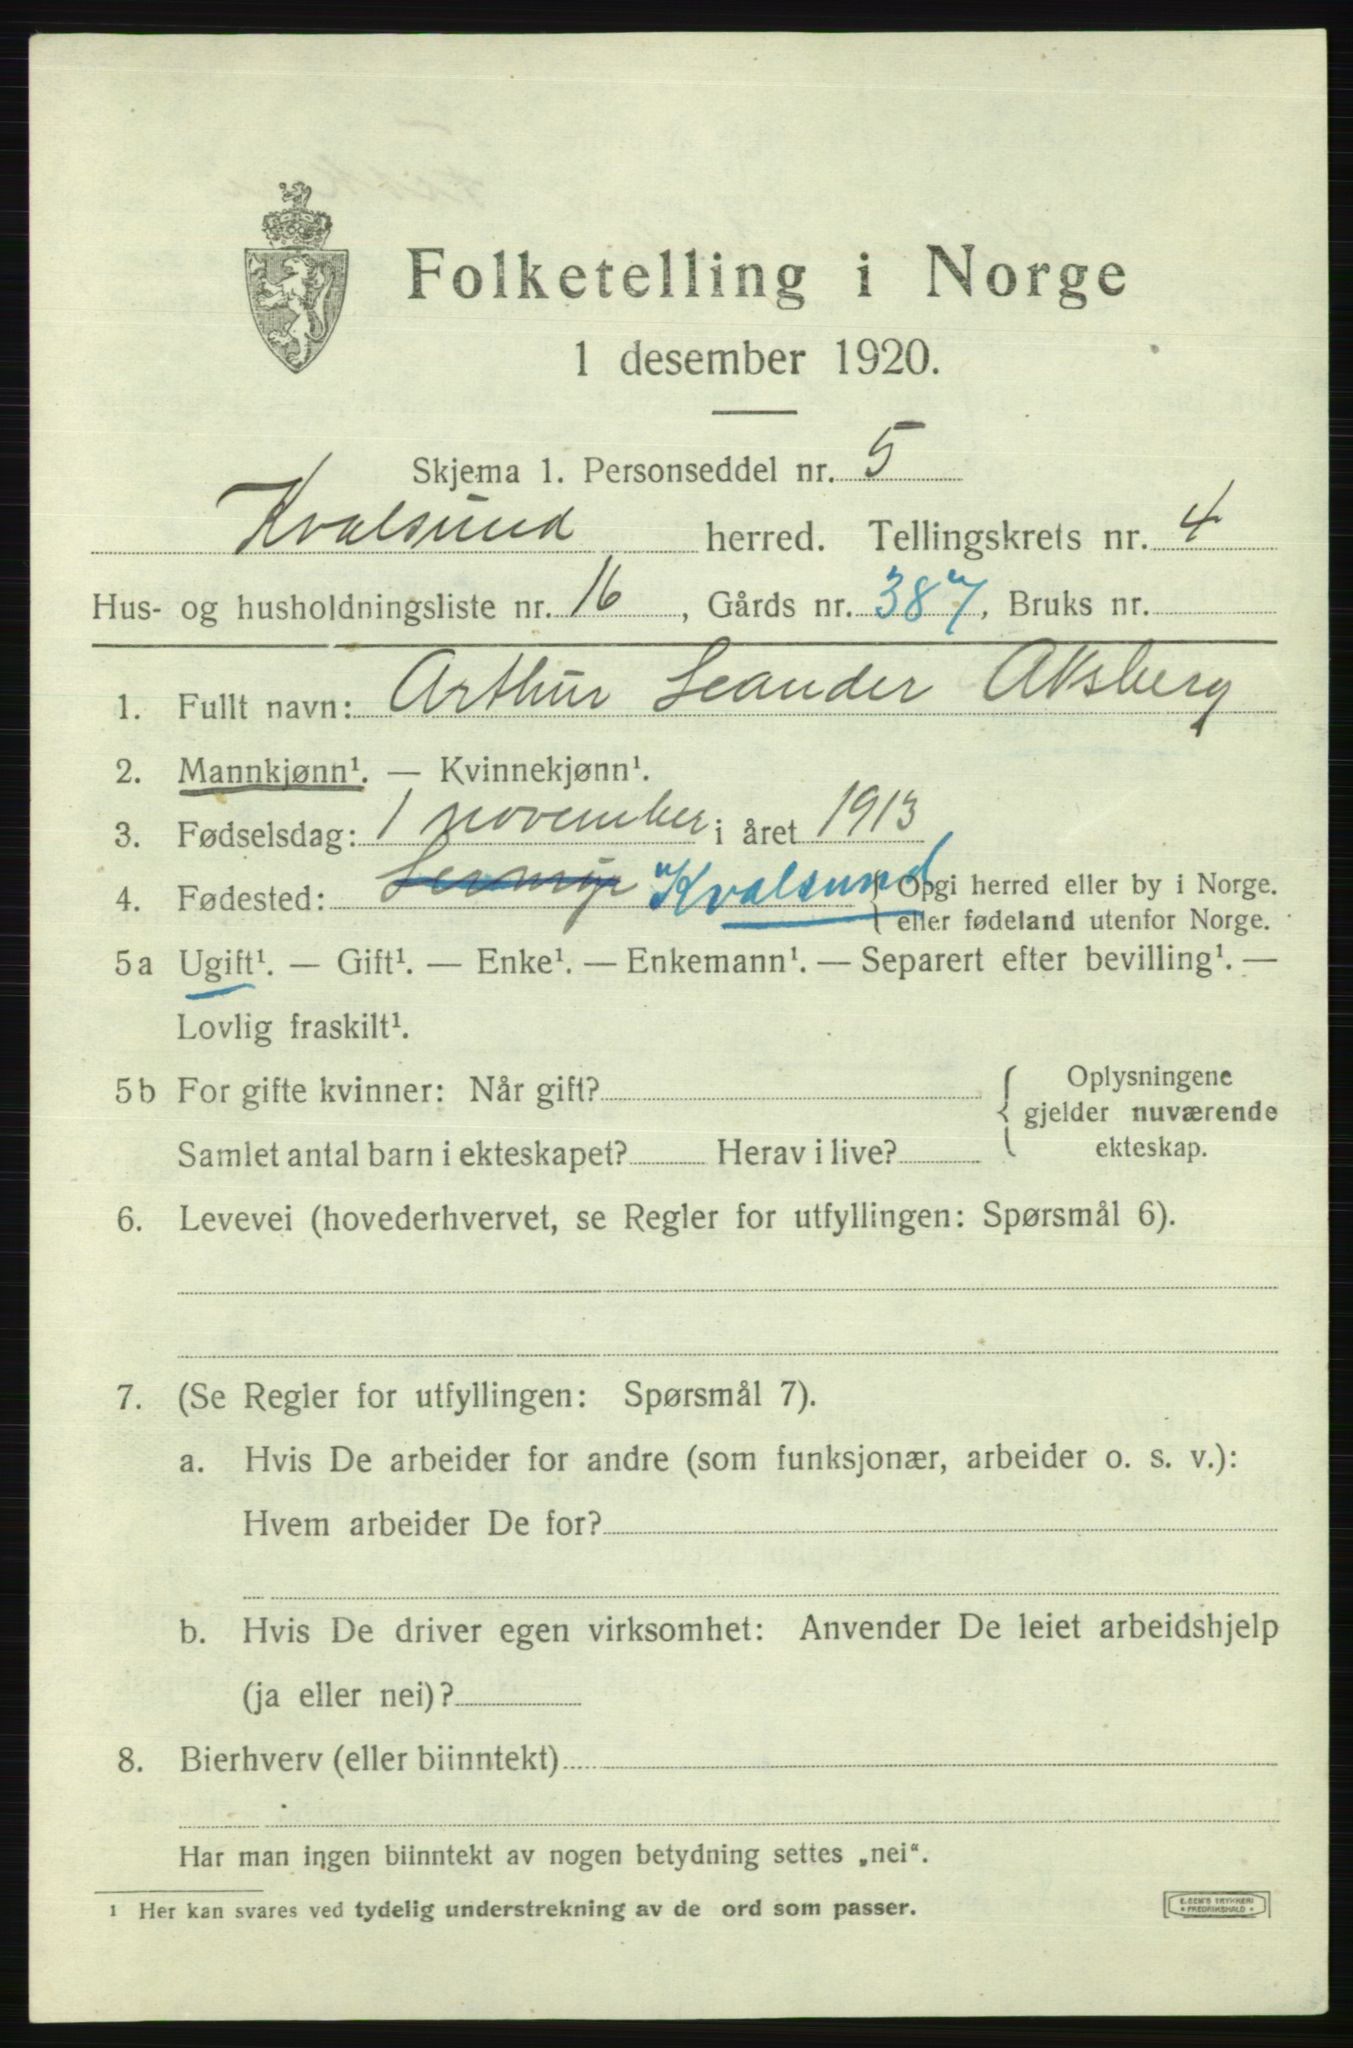 Folketelling i Norge
1 desember 1920.
Skjema 1. Personseddel nr. 5
Kvalsund herred. Tellingskrets nr. 4
Hus- og husholdningsliste nr. 16, Gårds nr. 387, Bruks nr.
1. Fullt navn: Arthur Leander Aksberg
2. Mannkjønn¹. — Kvinnekjønn¹.
3. Fødselsdag: 1 november i året 1913
4. Fødested: Kvalsund { Opgi herred eller by i Norge.
eller fødeland utenfor Norge.
5a Ugift¹. — Gift¹. — Enke¹. — Enkemann¹. — Separert efter bevilling¹. —
Lovlig fraskilt¹.
5b For gifte kvinner: Når gift?
Samlet antal barn i ekteskapet? Herav i live?
{ Oplysningene
gjelder nuværende
ekteskap.
6. Levevei (hovederhvervet, se Regler for utfyllingen: Spørsmål 6).
7. (Se Regler for utfyllingen: Spørsmål 7).
a. Hvis De arbeider for andre (som funksjonær, arbeider o. s. v.):
Hvem arbeider De for?
b. Hvis De driver egen virksomhet: Anvender De leiet arbeidshjelp
(ja eller nei)?
8. Bierhverv (eller biinntekt)
Har man ingen biinntekt av nogen betydning settes „nei“.
¹ Her kan svares ved tydelig understrekning av de ord som passer.
E. SEM'S TRYKKERI
* FREDRIKSHALD *